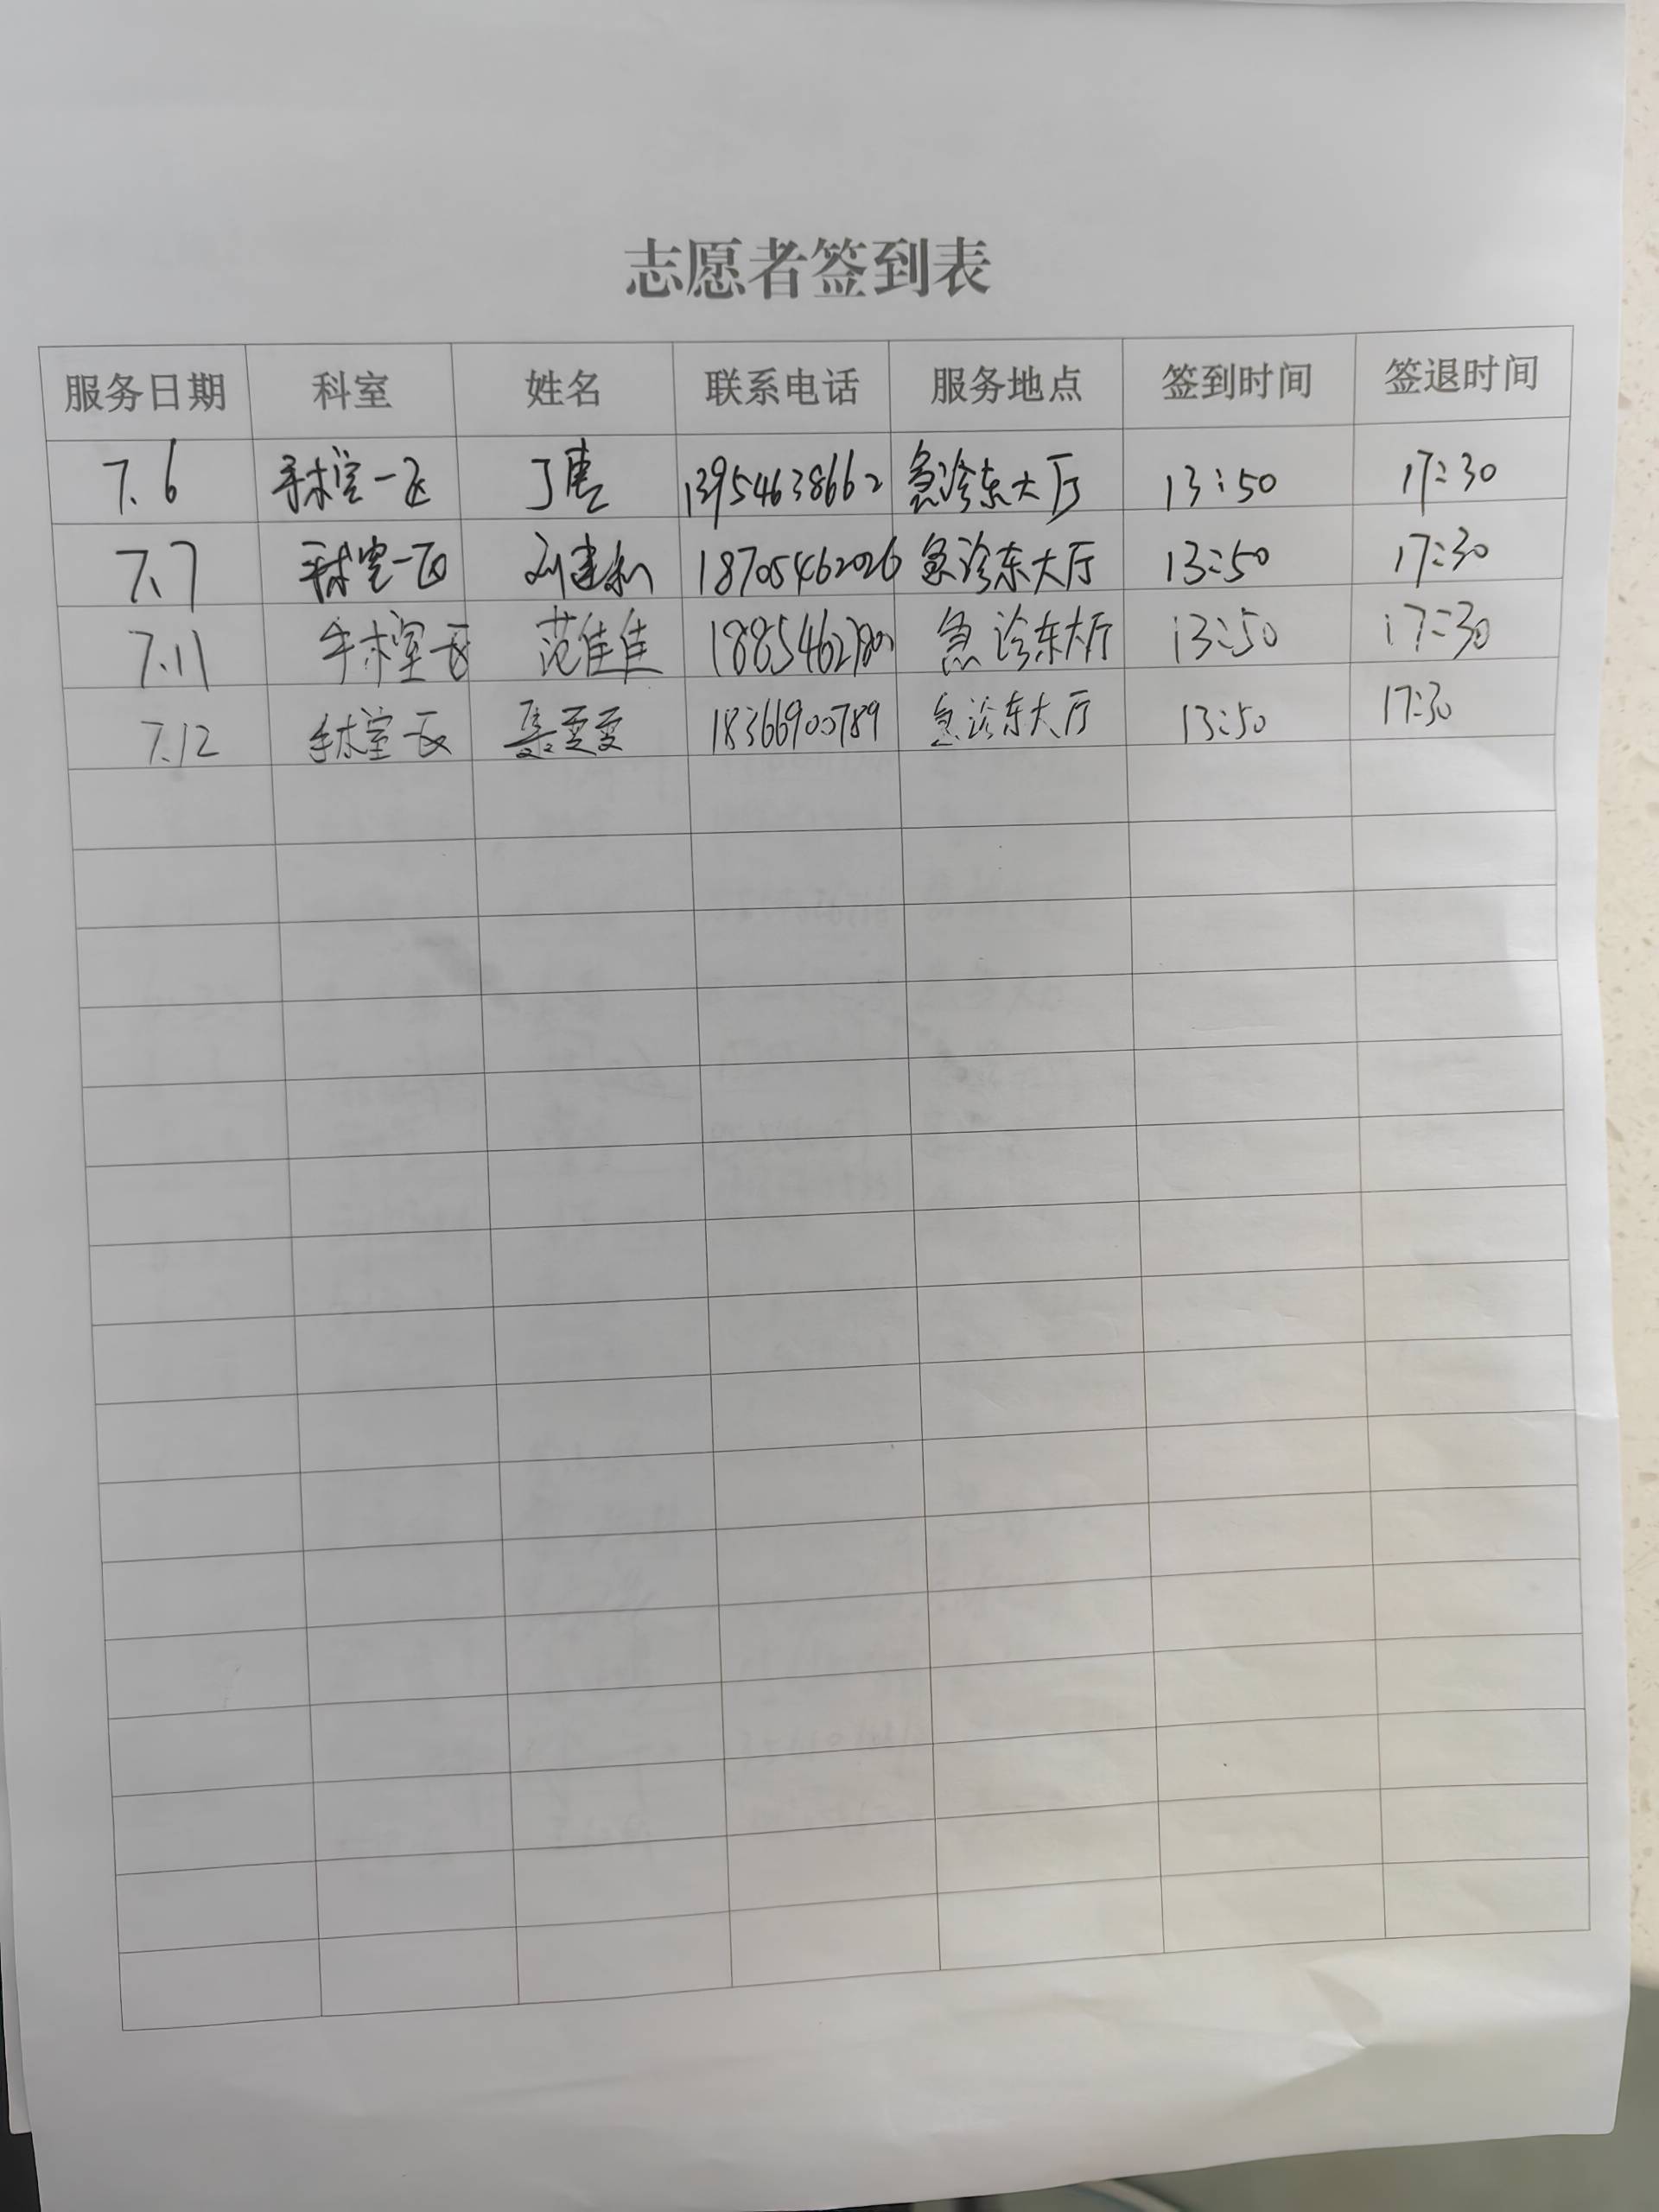 志愿者签到表
服务日期 科室 姓名 联系电话 服务地点 签到时间 签退时间
7.6 手术室一区 丁 13954638662 急诊东大厅 13:50 17:30
7.7 手术室一区 刘建利 18705462026 急诊东大厅 13:50 17:30
7.11 手术室一区 范佳佳 急诊东大厅 13:50 17:30
7.12 手术室一区 聂雯雯 18366900789 急诊东大厅 13:50 17:30